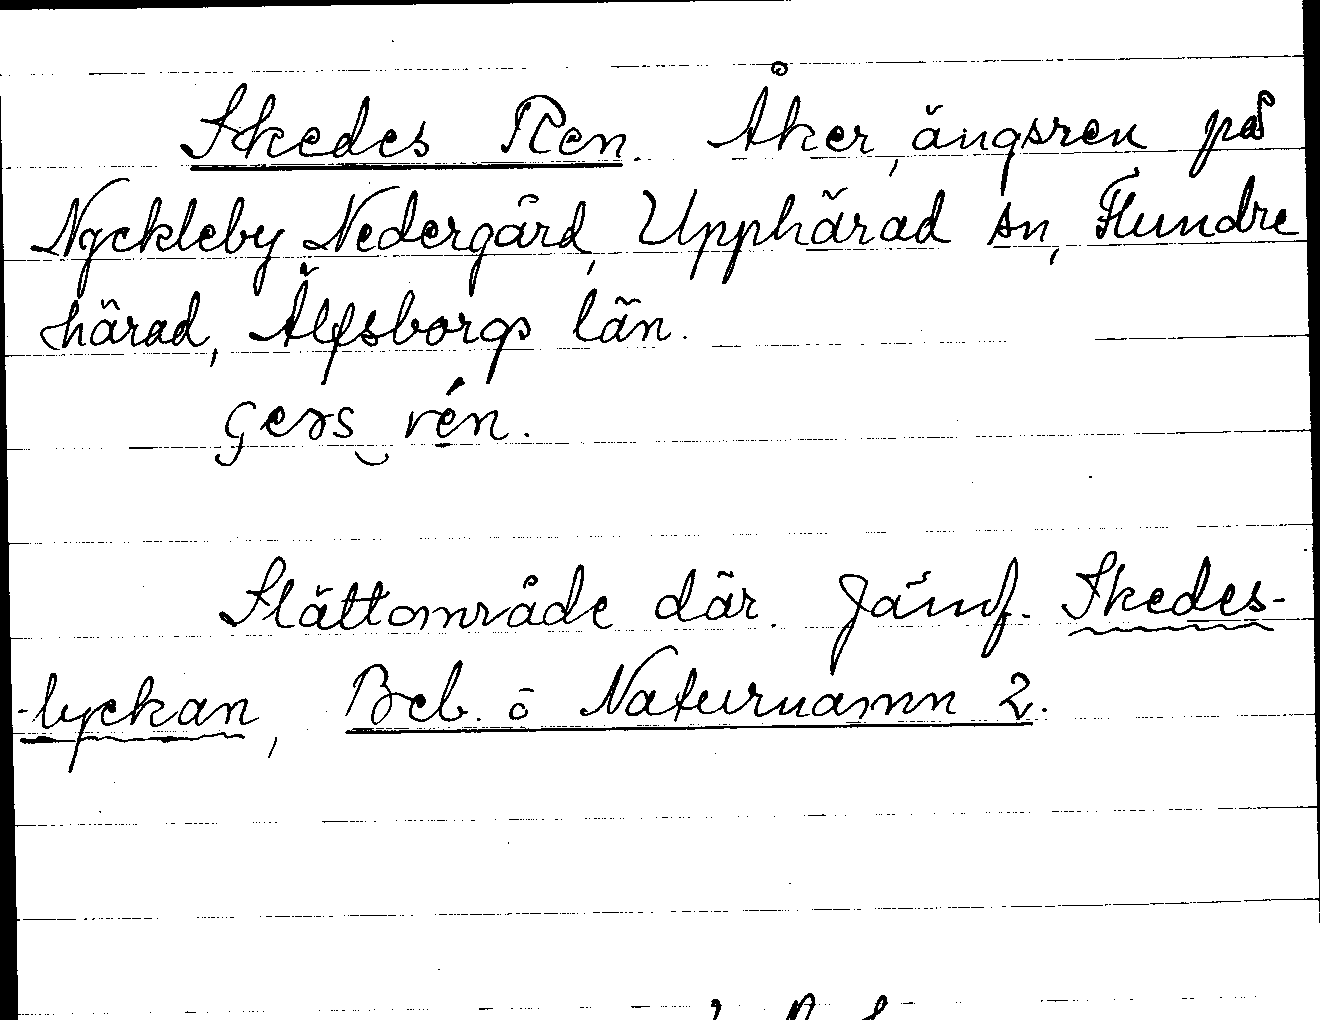 Skedes Ren. Åker, ängsren på
Nyckleby Nedergård, Upphärad sn, Flundre
härad, Älfsborgs län.
ꞔeꝛs‿rén.
Slättområde där. Jämf. Skedes-
-lyckan, Beb. o Naturnamn 2.